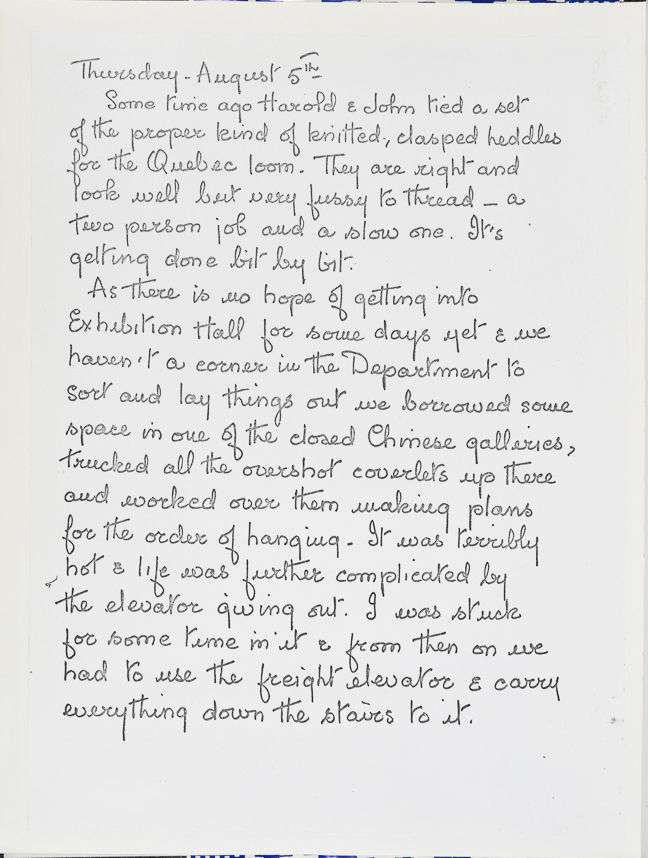 Thursday - August 5th
Some time ago Harold & John tied a set
of the proper kind of knitted, clasped heddles
for the Quebec loom. They are right and
look well but very fussy to thread - a
two person job and a slow one. It's
getting done bit by bit.
As there is no hope of getting into
Exhibition Hall for some days yet & we
haven't a corner in the Department to
sort and lay things out we borrowed some
space in one of the closed Chinese galleries,
trucked all the overshot coverlets up there
and worked over them making plans
for the order of hanging. It was terribly
hot & life was further complicated by
the elevator giving out. I was stuck
for some time in it & from then on we
had to use the freight elevator & carry
everything down the stairs to it.